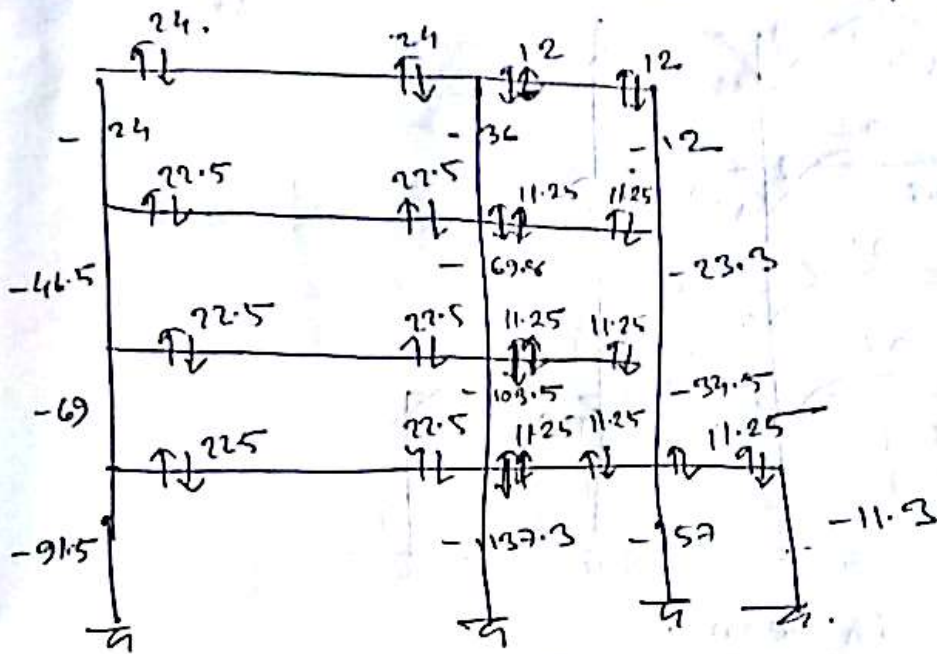 24. 24 12 12
- 24 - 36 - 12
22.5 22.5 11.25 11.25
-46.5 - 69.8 -23.3
22.5 22.5 11.25 11.25
-69 - 103.5 -34.5
22.5 22.5 11.25 11.25 11.25
-91.5 - 137.3 - 57 -11.3